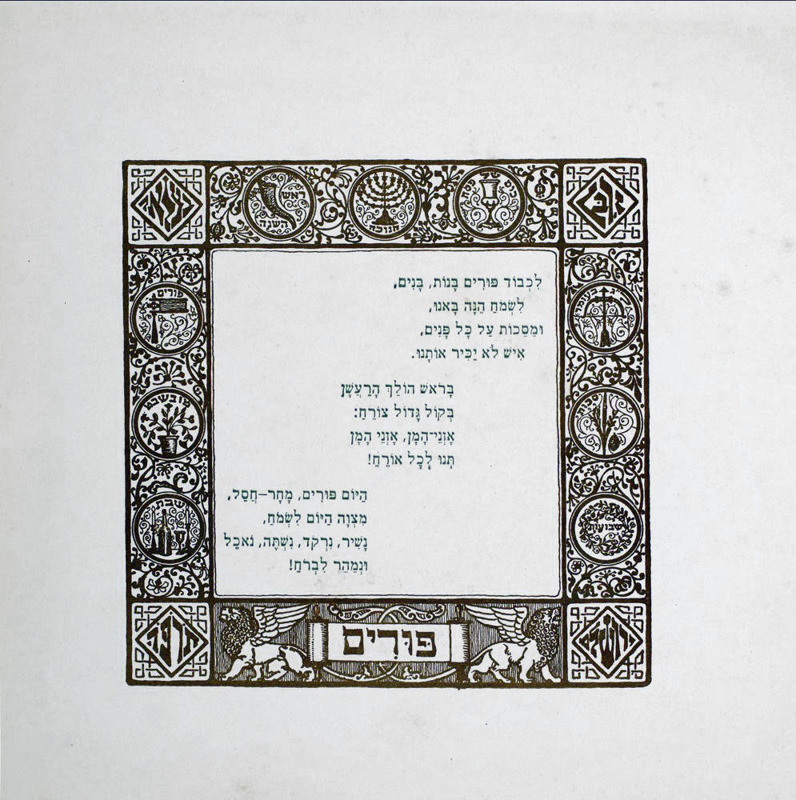 ראש
השנה
חנוכה
פורים
שבת
שבועות
לִכְבוֹד פּוּרִים בָּנוֹת, בָּנִים,
לִשְׂמֹחַ הִנֵּה בָּאנוּ.
וּמַסֵּכוֹת עַל כָּל פָּנִים,
אִישׁ לֹא יַכִּיר אוֹתָנוּ.
בָּרֹאשׁ הוֹלֵךְ הָרַעֲשָׁן
בְּקוֹל גָּדוֹל צוֹרֵחַ:
אָזְנֵי־הָמָן, אָזְנֵי הָמָן
תְּנוּ לְכָל אוֹרֵחַ!
הַיּוֹם פּוּרִים, מָחָר–חֲסַל,
מִצְוָה הַיּוֹם לִשְׂמֹחַ,
נָשִׁיר, נִרְקֹד, נִשְׁתֶּה, נֹאכַל
וּנְמַהֵר לִבְרֹחַ!
פּוּרִים